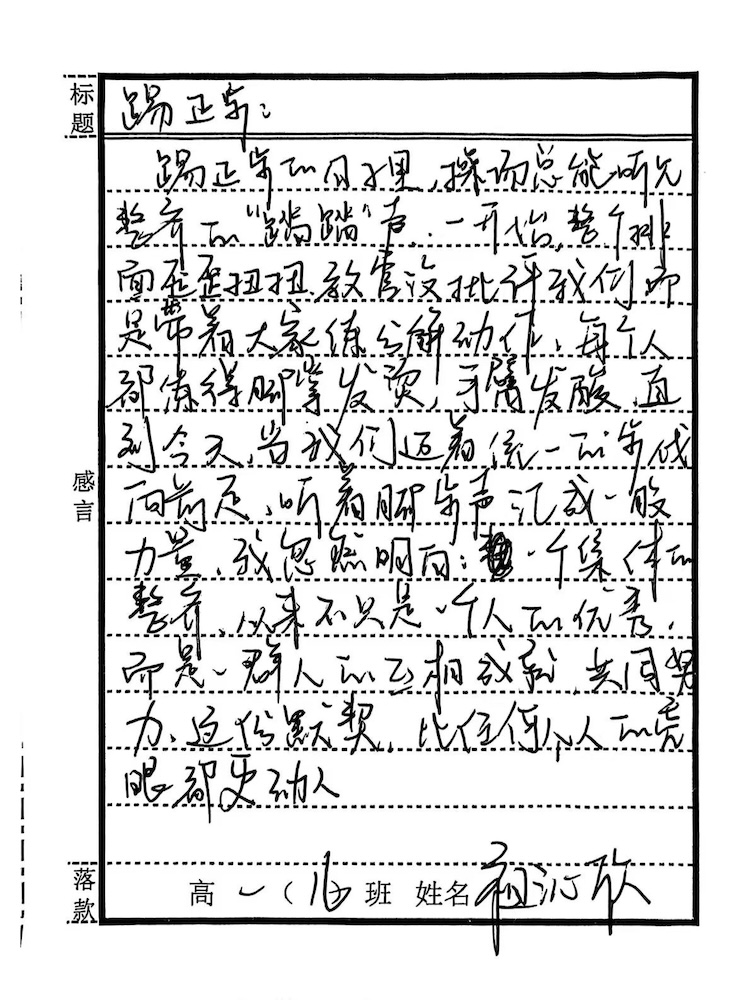 标题
踢正步：
踢正步的日子里，操场总能听见
整齐的“踏踏”声，一开始，整个排
面歪歪扭扭，教官没批评我们而
是带着大家练分解动作，每个人
都练得脚掌发烫，手臂发酸，直
到今天，当我们迈着统一的步伐
向前走，听着脚步声汇成一股
力量，我忽然明白：一个集体的
整齐，从来不只是一个人的优秀，
而是一群人的互相成就，共同努
力，这份默契，比任何个人的亮
眼都更动人
感言
落款
高一（16）班 姓名